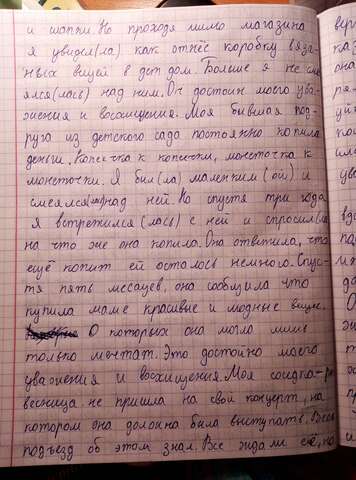 и шапки. Но проходя мимо магазина
я увидел(ла) как отнёс коробку вяза-
ных вещей в дет дом. Больше я не сме-
ялся(лась) над ним. Он достоин моего ува-
жения и восхищения. Моя бывшая под-
руга из детского сада постоянно копила
деньги. Копеечка к копеичке, монеточка к
монеточки. Я был(ла) маленким(ой) и
смеялся над ней. Но спустя три года
я встретился(лась) с ней и спросил(ла
на что же она копила. Она ответила, что
ещё копит ей осталось немного. Спус-
тя пять месацев, она сообщила что
купила маме красивые и модные вещи.
О которых она могла лишь
только мечтат. Это достойно моего
уважения и восхищения. Моя соседка-ро
весница не пришла на свой концерт, на
котором она должна была выступать. Весь
подъезд об этом знал. Все ждали её, но